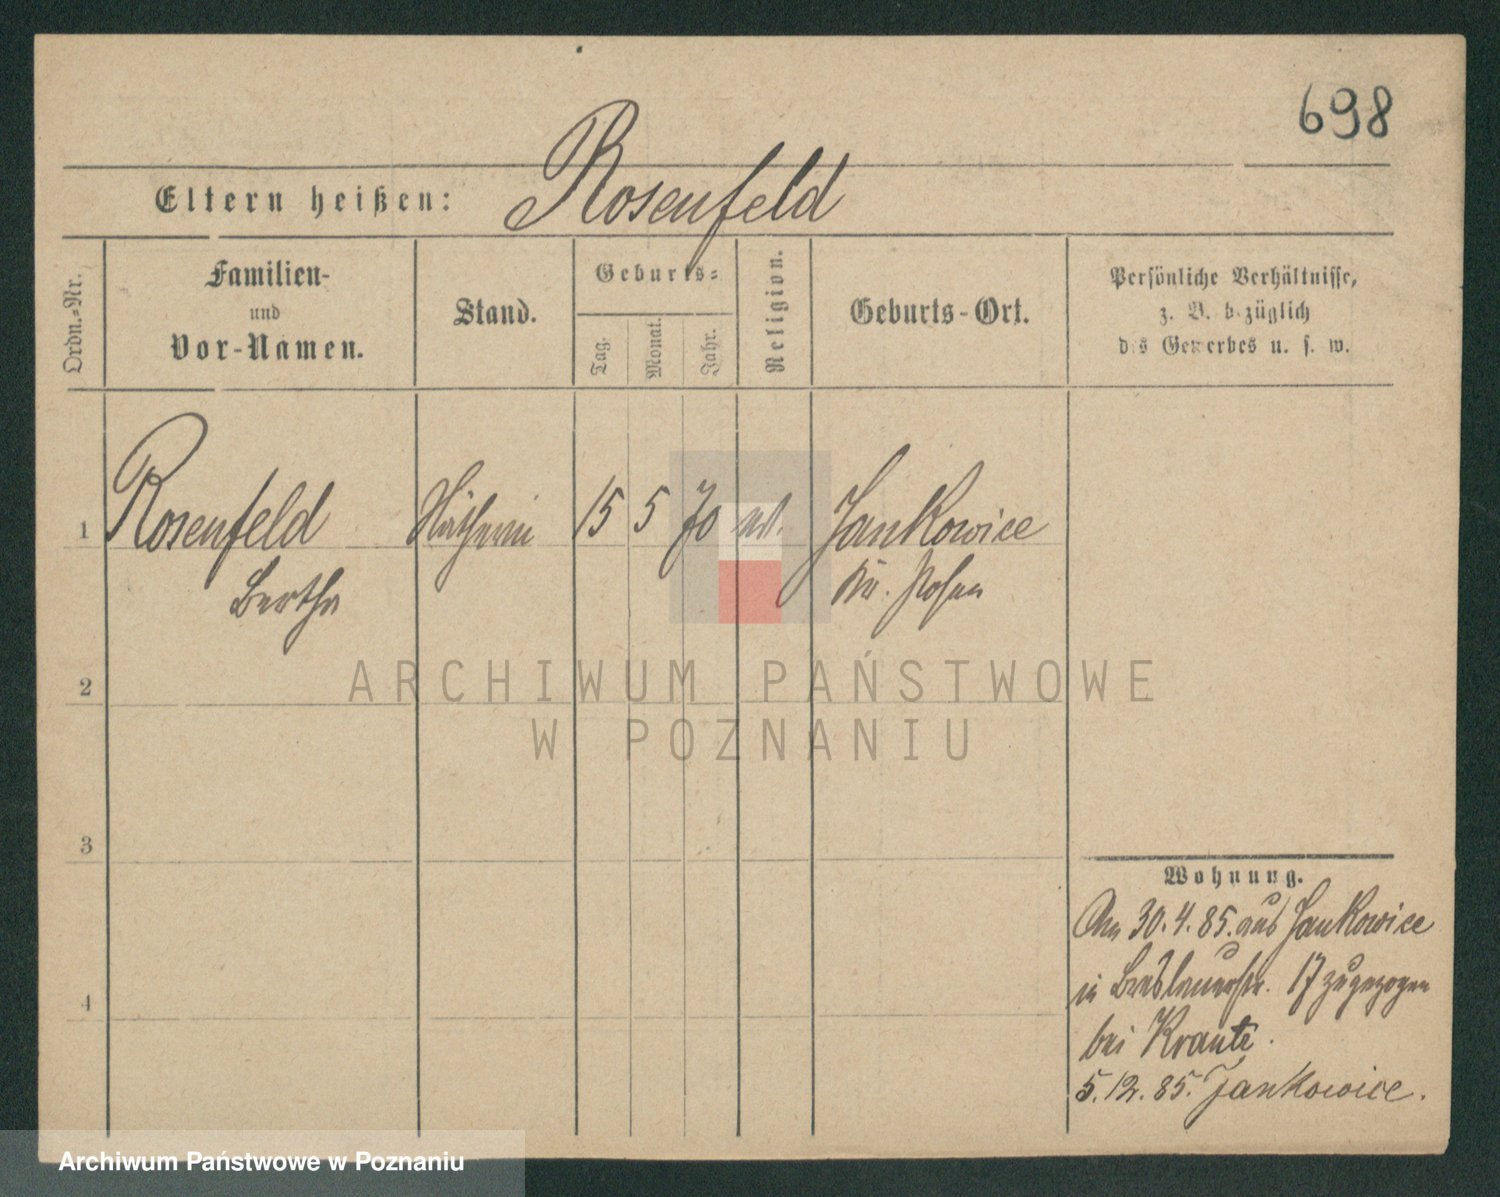 698
Eltern heißen: Rosenfeld
Ordn.=Nr.
Familien-
und
Vor-Namen.
Stand.
Geburts=
Tag.
Monat.
Jahr.
Religion.
Geburts-Ort.
Persönliche Verhältnisse,
z. B. bezüglich
des Gewerbes u. s. w.
1 Rosenfeld Nätherin 15 5 70 Jankowice
Bertha Kr. Posen
2
3
4
Wohnung.
Am 30.4.85. aus Jankowice
in Breslauerstr. 17 zugezogen
bei Kraute.
5.12.85. Jankowice.
ARCHIWUM PAŃSTWOWE
W POZNANIU
Archiwum Państwowe w Poznaniu